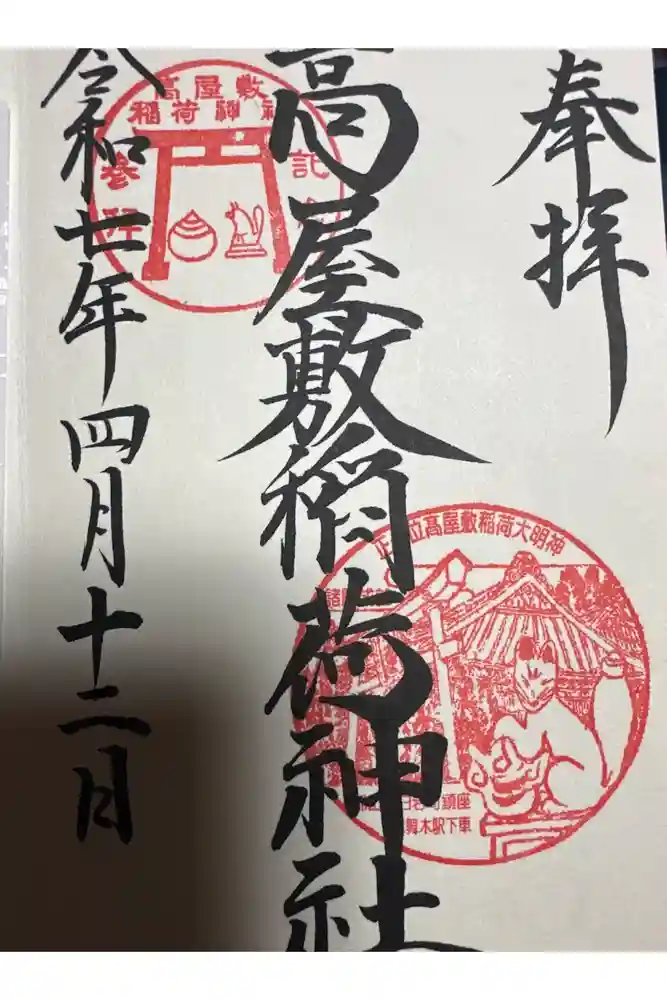 奉拝
正一位髙屋敷稲荷大明神
鎮座
舞木駅下車
高屋敷稲荷神社
髙屋敷
稲荷神社
記念
参拝
令和七年四月十二日